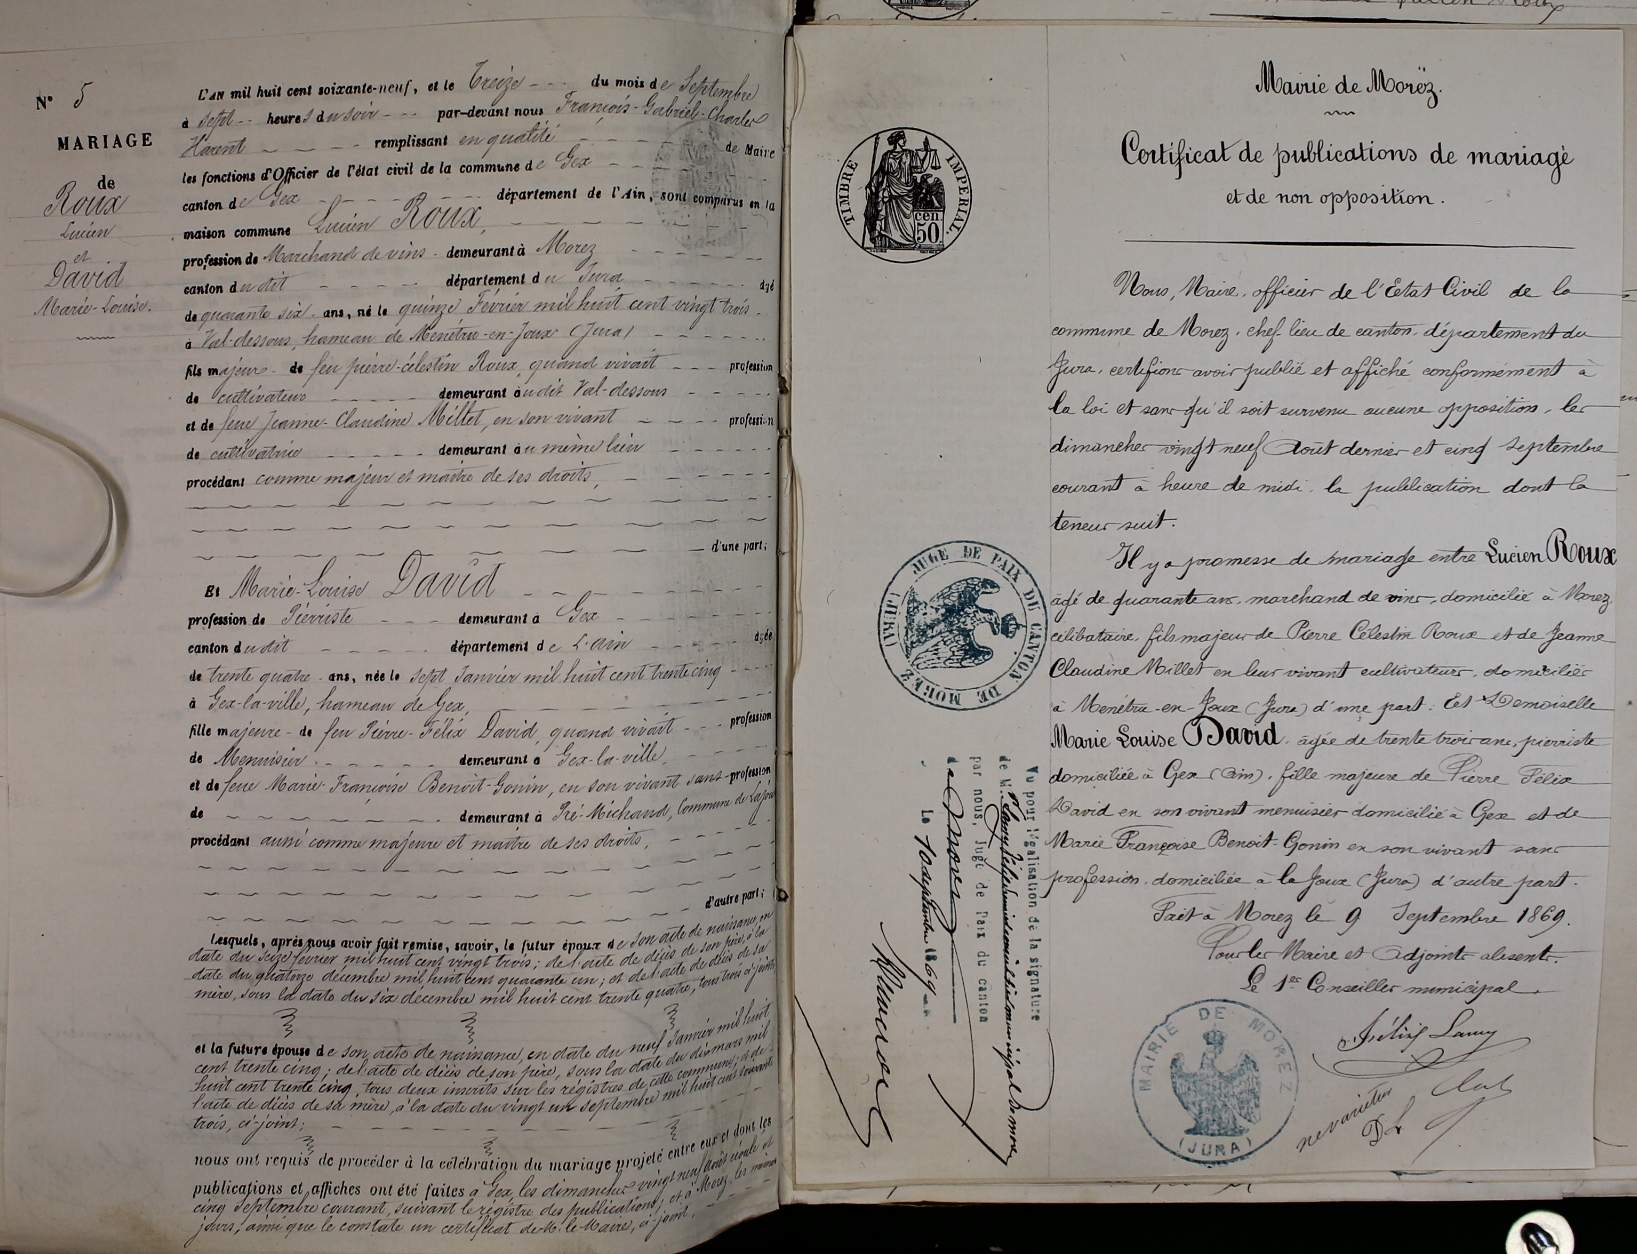 N° 5
MARIAGE
de
Roux
Lucien
et
David
Marie-Louise.
L'AN mil huit cent soixante-neuf, et le Treize du mois de Septembre
à sept heures du soir par-devant nous François-Gabriel-Charles
Harent remplissant en qualité de Maire
les fonctions d'Officier de l'état civil de la commune de Gex
canton de Gex département de l'Ain, sont comparus en la
maison commune Lucien Roux,
profession de Marchand de vins demeurant à Morez
canton du dit département du Jura âgé
de quarante six ans, né le quinze Février mil huit cent vingt trois
à Val-dessous, hameau de Menétru-en-Joux (Jura)
fils majeur de feu pierre-célestin Roux, quand vivait profession
de cultivateur demeurant audit Val-dessous
et de feue Jeanne-Claudine Millet, en son vivant profession
de cultivatrice demeurant au même lieu
procédant comme majeur et maître de ses droits,
d'une part;
Et Marie-Louise David
profession de Pierriste demeurant à Gex
canton du dit département de L'ain âgée
de trente quatre ans, née le sept Janvier mil huit cent trente cinq
à Gex-la-ville, hameau de Gex,
fille majeure de feu Pierre-Félix David, quand vivait profession
de Menuisier demeurant à Gex-la-ville,
et de feue Marie-Françoise Benoit-Gonin, en son vivant sans profession
de demeurant à Pré-Michaud, Commune de Lajoux
procédant aussi comme majeure et maître de ses droits,
d'autre part;
Lesquels, après nous avoir fait remise, savoir, le futur époux de son acte de naissance, en
date du seize février mil huit cent vingt trois; de l'acte de décès de son père, à la
date du quatorze décembre mil huit cent quarante un; et de l'acte de décès de sa
mère, sous la date du six décembre mil huit cent trente quatre, tous trois ci-joints;
et la future épouse de son acte de naissance, en date du neuf Janvier mil huit
cent trente cinq; de l'acte de décès de son père, sous la date du dix mars mil
huit cent trente cinq, tous deux inscrits sur les régistres de cette commune; et de
l'acte de décès de sa mère, à la date du vingt un septembre mil huit cent soixante
trois, ci-joint;
nous ont requis de procéder à la célébration du mariage projeté entre eux et dont les
publications et affiches ont été faites à Gex, les dimanches vingt neuf Août écoulé et
cinq Septembre courant, suivant le régistre des publications, et à Morez, les mêmes
jours, ainsi que le constate un certificat de Mr. le Maire, ci-joint.
TIMBRE IMPERIAL.
50 cen
Mairie de Morëz.
Certificat de publications de mariage
et de non opposition.
Nous, Maire, officier de l'Etat Civil de la
commune de Morez, chef-lieu de canton, département du
Jura, certifions avoir publié et affiché conformement à
la loi et sans qu'il soit survenu aucune opposition, les
dimanches vingt neuf Août dernier et cinq septembre
courant à heure de midi, la publication dont la
teneur suit.
Il y a promesse de mariage entre Lucien Roux
agé de quarante ans, marchand de vins, domicilié à Morez
célibataire, fils majeur de Pierre Célestin Roux et de Jeanne
Claudine Millet en leur vivant cultivateurs, domiciliés
à Menétru-en-Joux (Jura) d'une part. Et Demoiselle
Marie Louise David, agée de trente trois ans, pierriste
domiciliée à Gex (Ain), fille majeure de Pierre Félix
David en son vivant menuisier domicilié à Gex et de
Marie Françoise Benoit-Gonin en son vivant sans
profession, domiciliée à la Joux (Jura) d'autre part.
Fait à Morez le 9 Septembre 1869.
Pour les Maire et Adjoints absents.
Le 1er Conseiller municipal.
Félix Lamy
ne varietur
JUGE DE PAIX DU CANTON DE MOREZ (JURA)
Vu pour légalisation de la signature
de M. Lamy Félix conseiller municipal de Morez
par nous, Juge de Paix du canton
de Morez
Le 10 septembre 1869
MAIRIE DE MOREZ
(JURA)